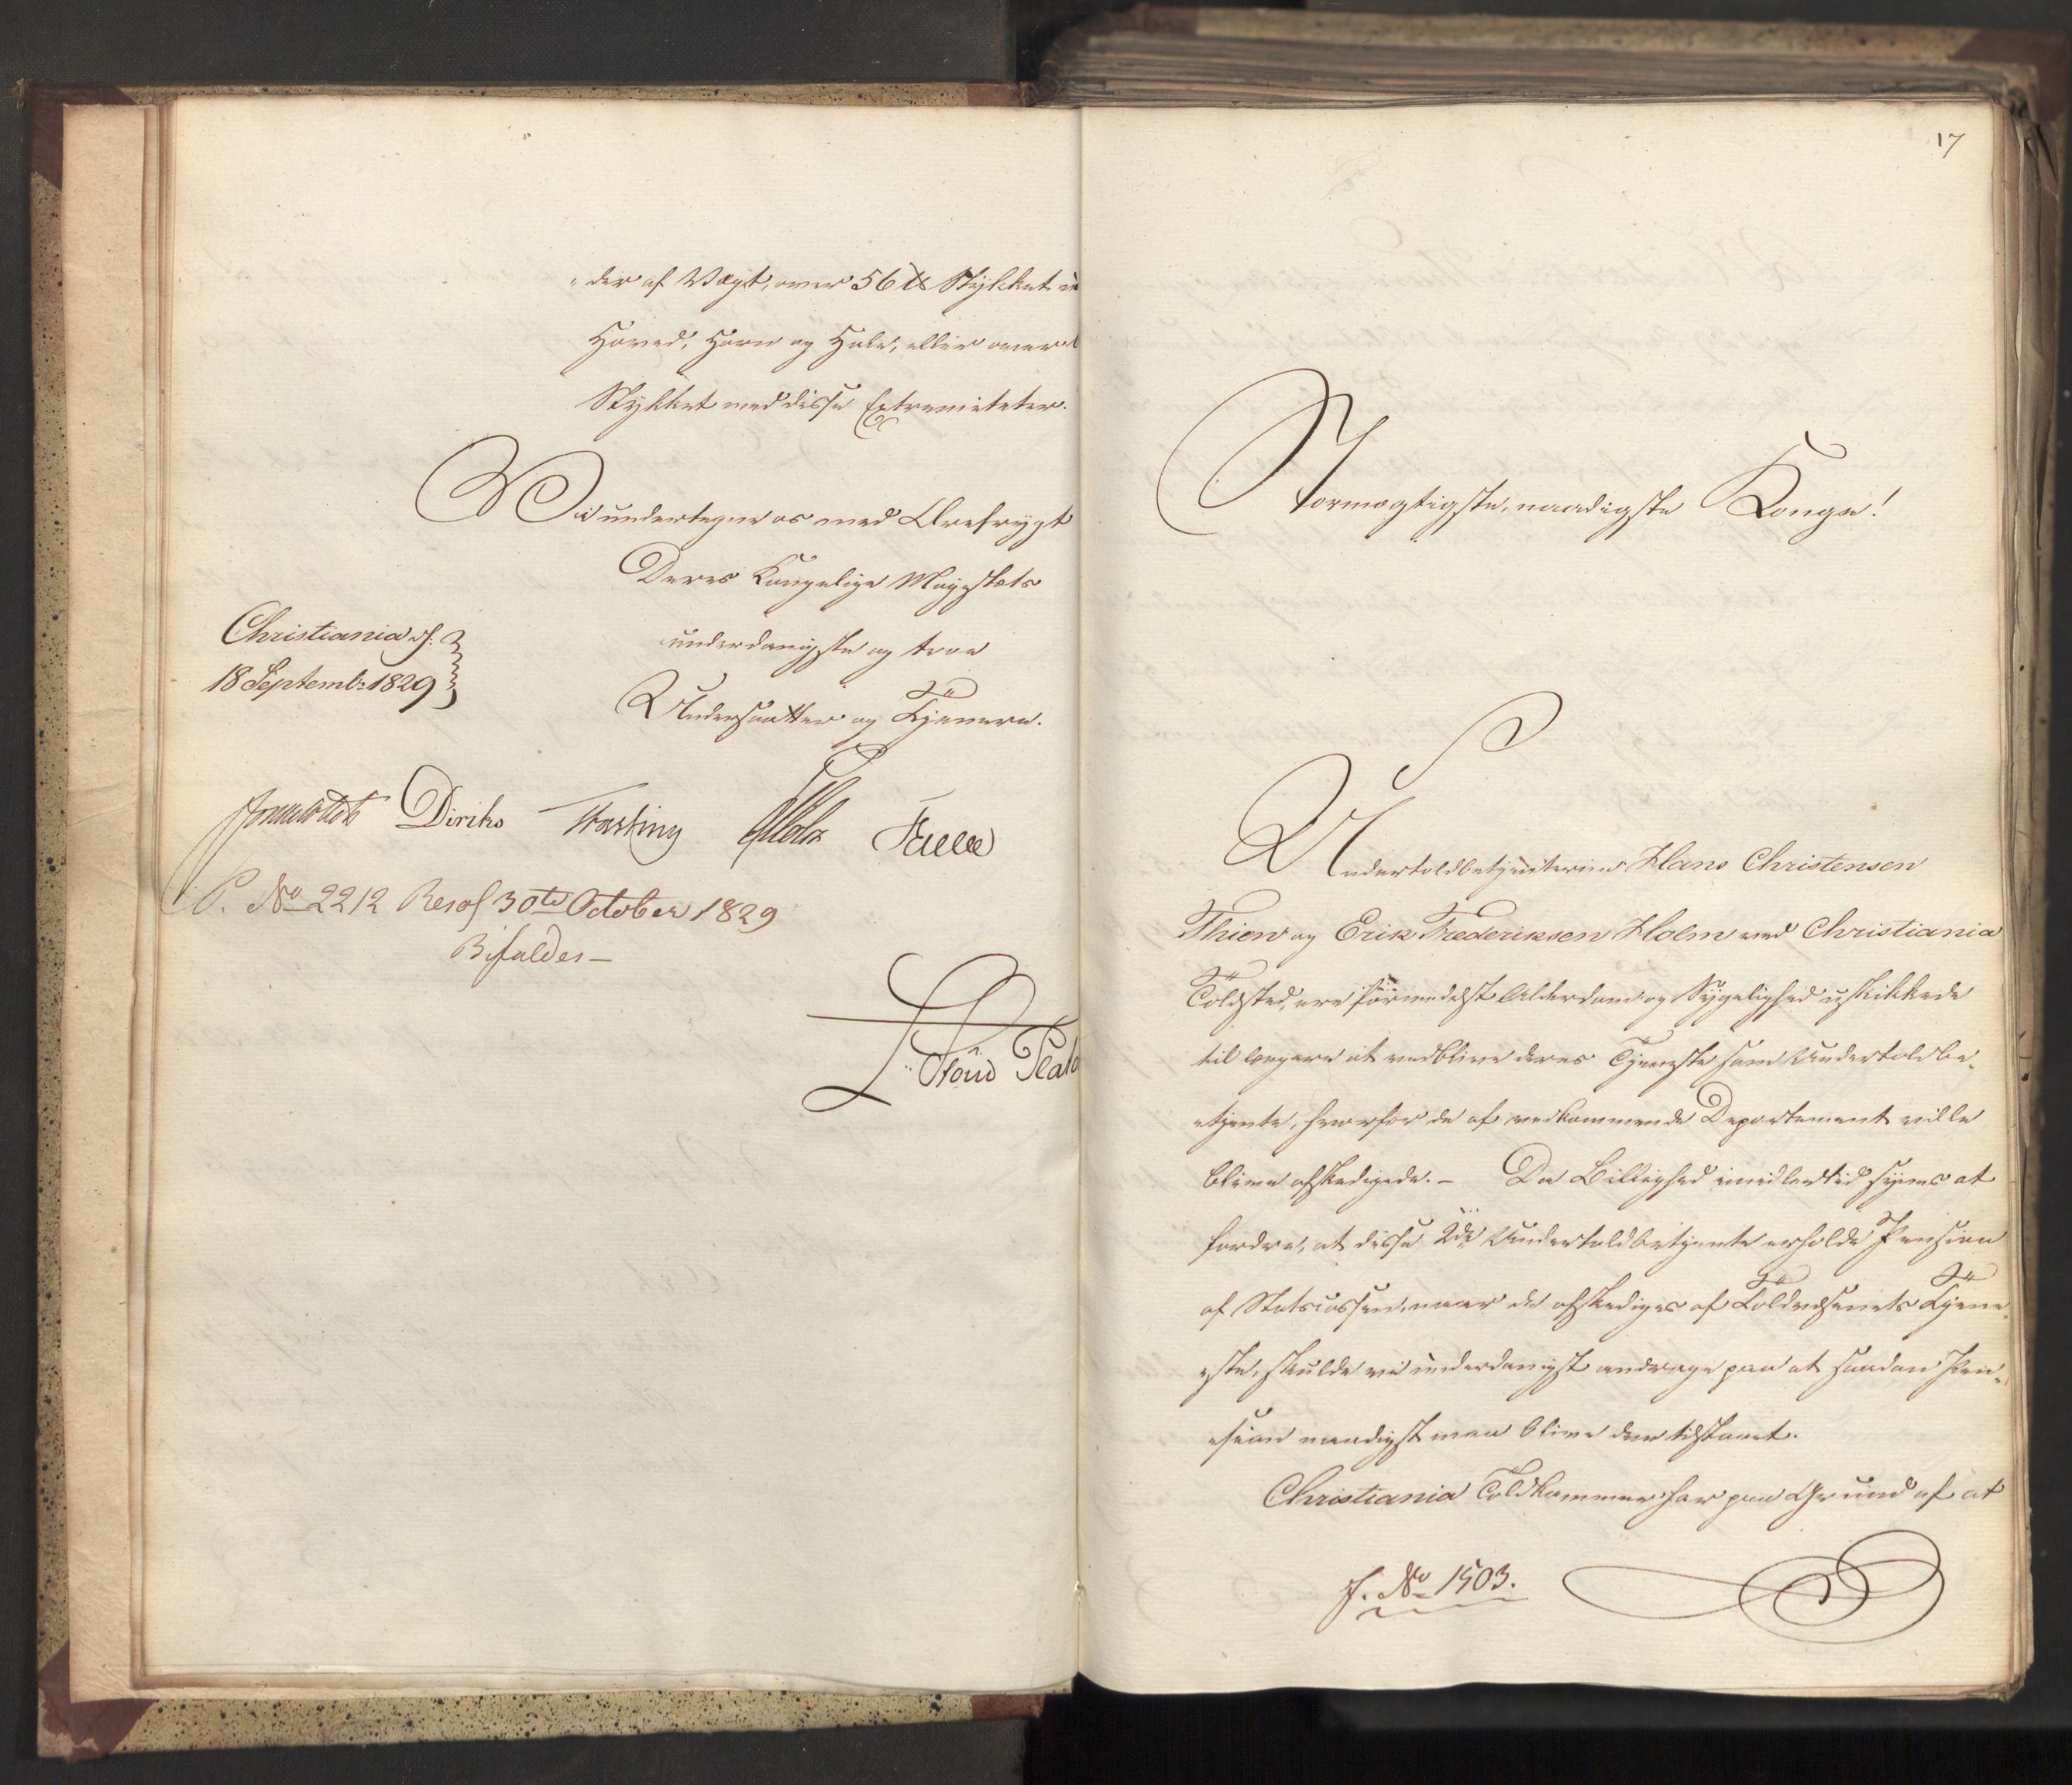 der af Vægt, over 56 ℔ Stykket
Hoved, Horn og Hale, eller over
Stykket med disse Extremiteter.
Vi undertegne os med Ærefrygt
Deres Kongelige Majestæts
underdanigste og troe
Undersaatter og Tjenere.
Christiania d.
18 Septembr 1829
Diriks
P. No 2212 Resol 30te October 1829
Bifaldes
17
Stormægtigste, naadigste Konge!
Undertoldbetjenterne Hans Christensen
Thien og Erik Frederiksen Holm ved Christiania
Toldsted, ere formedelst Alderdom og Sygelighed uskikkede
til længere at vedblive deres Tjeneste som Undertoldbe-
tjente, hvorfor de af vedkommende Departement ville
blive afskedigede. – Da Billighed imidlertid synes at
fordre, at disse 2de Undertoldbetjente erholde Pension
af Statscassen, naar de afskediges af Toldvæsenets Tjene-
ste, skulde vi underdanigst andrage paa at saadan Pen-
sion naadigst maa blive dem tilstaaet.
Christiania Toldkammer har paa Grund af at
J. No 1503.